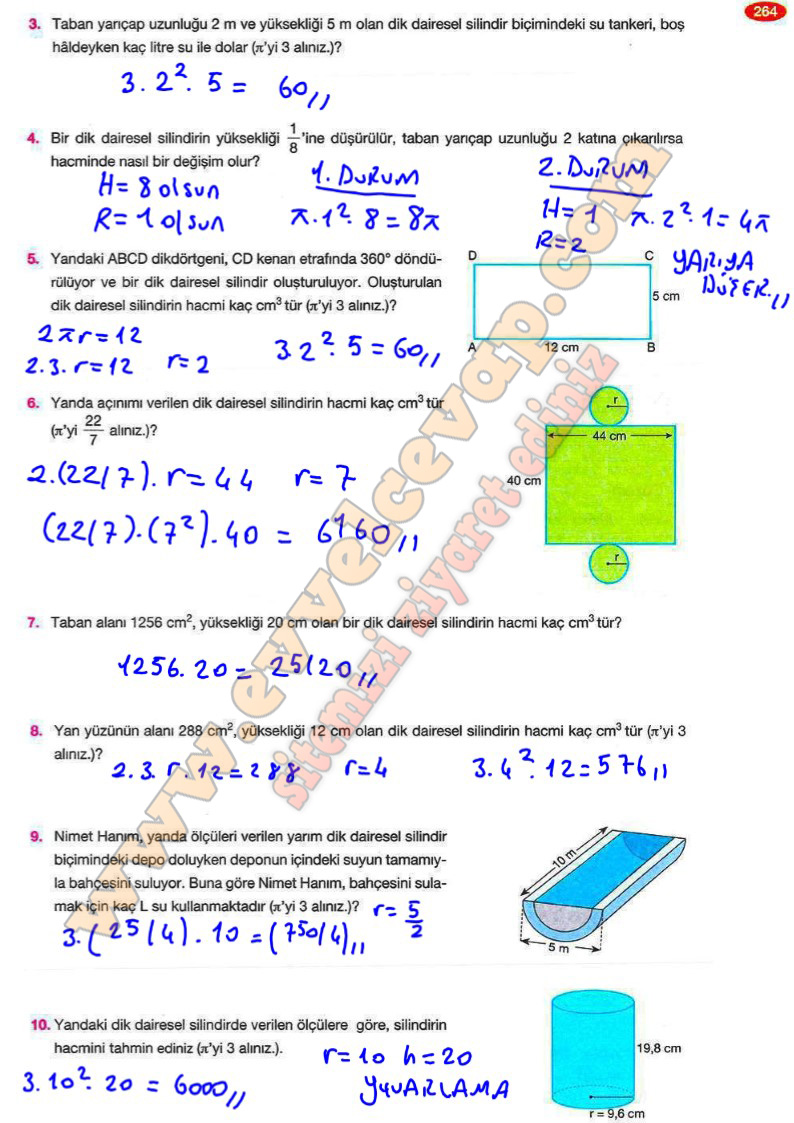 264
3. Taban yarıçap uzunluğu 2 m ve yüksekliği 5 m olan dik dairesel silindir biçimindeki su tankeri, boş
hâldeyken kaç litre su ile dolar (π'yi 3 alınız.)?
3.2².5 = 60,,
4. Bir dik dairesel silindirin yüksekliği 1/8'ine düşürülür, taban yarıçap uzunluğu 2 katına çıkarılırsa
hacminde nasıl bir değişim olur?
H=8 olsun
R=1 olsun
1. DURUM
π.1².8=8π
2. DURUM
H=1
R=2
π.2².1=4π
YARIYA
DÜŞER,,
5. Yandaki ABCD dikdörtgeni, CD kenarı etrafında 360° döndü-
rülüyor ve bir dik dairesel silindir oluşturuluyor. Oluşturulan
dik dairesel silindirin hacmi kaç cm³ tür (π'yi 3 alınız.)?
2πr=12
2.3.r=12 r=2
3.2².5=60,,
D C
5 cm
A 12 cm B
6. Yanda açınımı verilen dik dairesel silindirin hacmi kaç cm³ tür
(π'yi 22/7 alınız.)?
2.(22/7).r=44 r=7
(22/7).(7²).40 = 6160,,
r
44 cm
40 cm
r
7. Taban alanı 1256 cm², yüksekliği 20 cm olan bir dik dairesel silindirin hacmi kaç cm³ tür?
1256.20=25120,,
8. Yan yüzünün alanı 288 cm², yüksekliği 12 cm olan dik dairesel silindirin hacmi kaç cm³ tür (π'yi 3
alınız.)?
2.3.r.12=288 r=4 3.4².12=576,,
9. Nimet Hanım, yanda ölçüleri verilen yarım dik dairesel silindir
biçimindeki depo doluyken deponun içindeki suyun tamamıy-
la bahçesini suluyor. Buna göre Nimet Hanım, bahçesini sula-
mak için kaç L su kullanmaktadır (π'yi 3 alınız.)? r=5/2
3.(25/4).10=(750/4),,
10 m
5 m
10. Yandaki dik dairesel silindirde verilen ölçülere göre, silindirin
hacmini tahmin ediniz (π'yi 3 alınız.).
r=10 h=20
YUVARLAMA
3.10².20=6000,,
19,8 cm
r = 9,6 cm
www.evvelcevap.com
sitemizi ziyaret ediniz